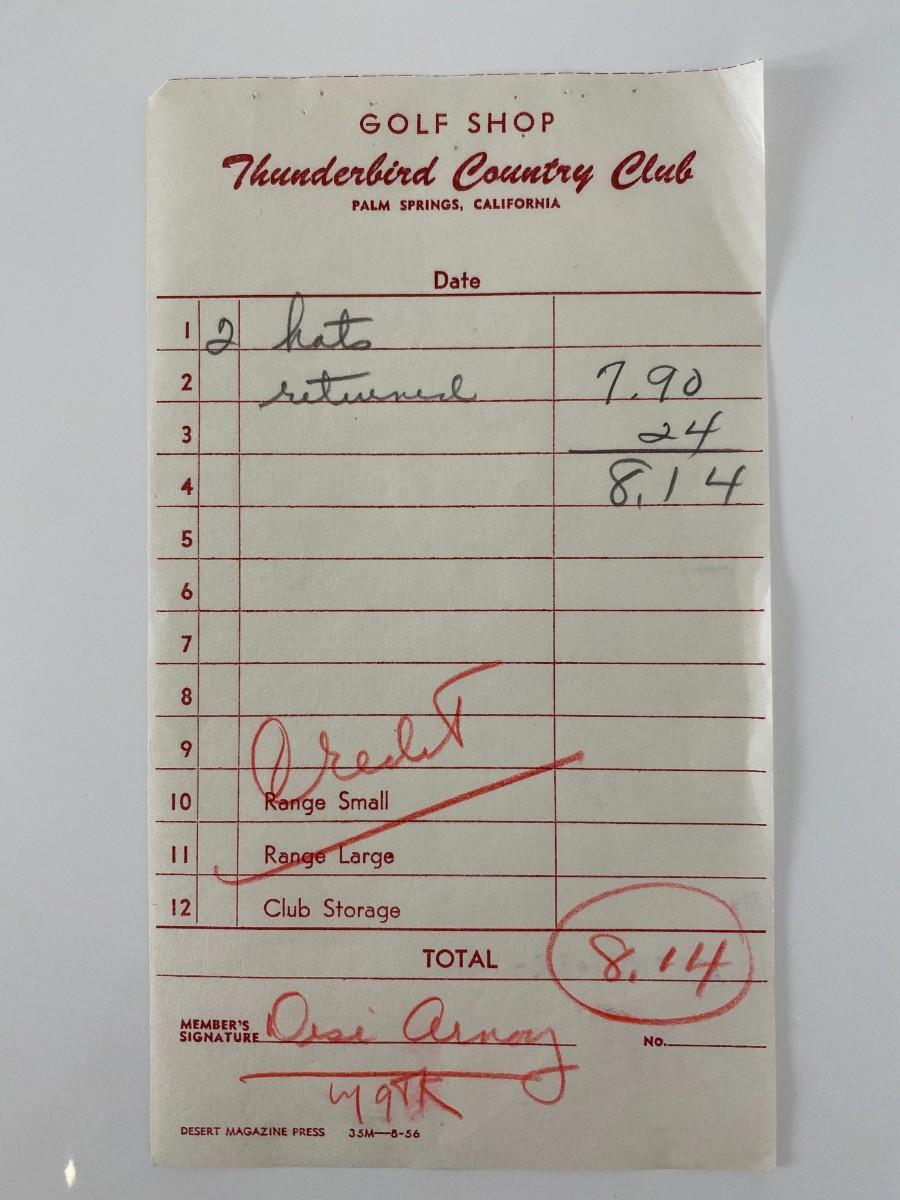 GOLF SHOP
Thunderbird Country Club
PALM SPRINGS, CALIFORNIA
Date
1 2 hats
2 returned 7.90
3 24
4 8.14
5
6
7
8
9 Credit
10 Range Small
11 Range Large
12 Club Storage
TOTAL 8.14
MEMBER'S
SIGNATURE Desi Arnaz No.
DESERT MAGAZINE PRESS 35M—8-56